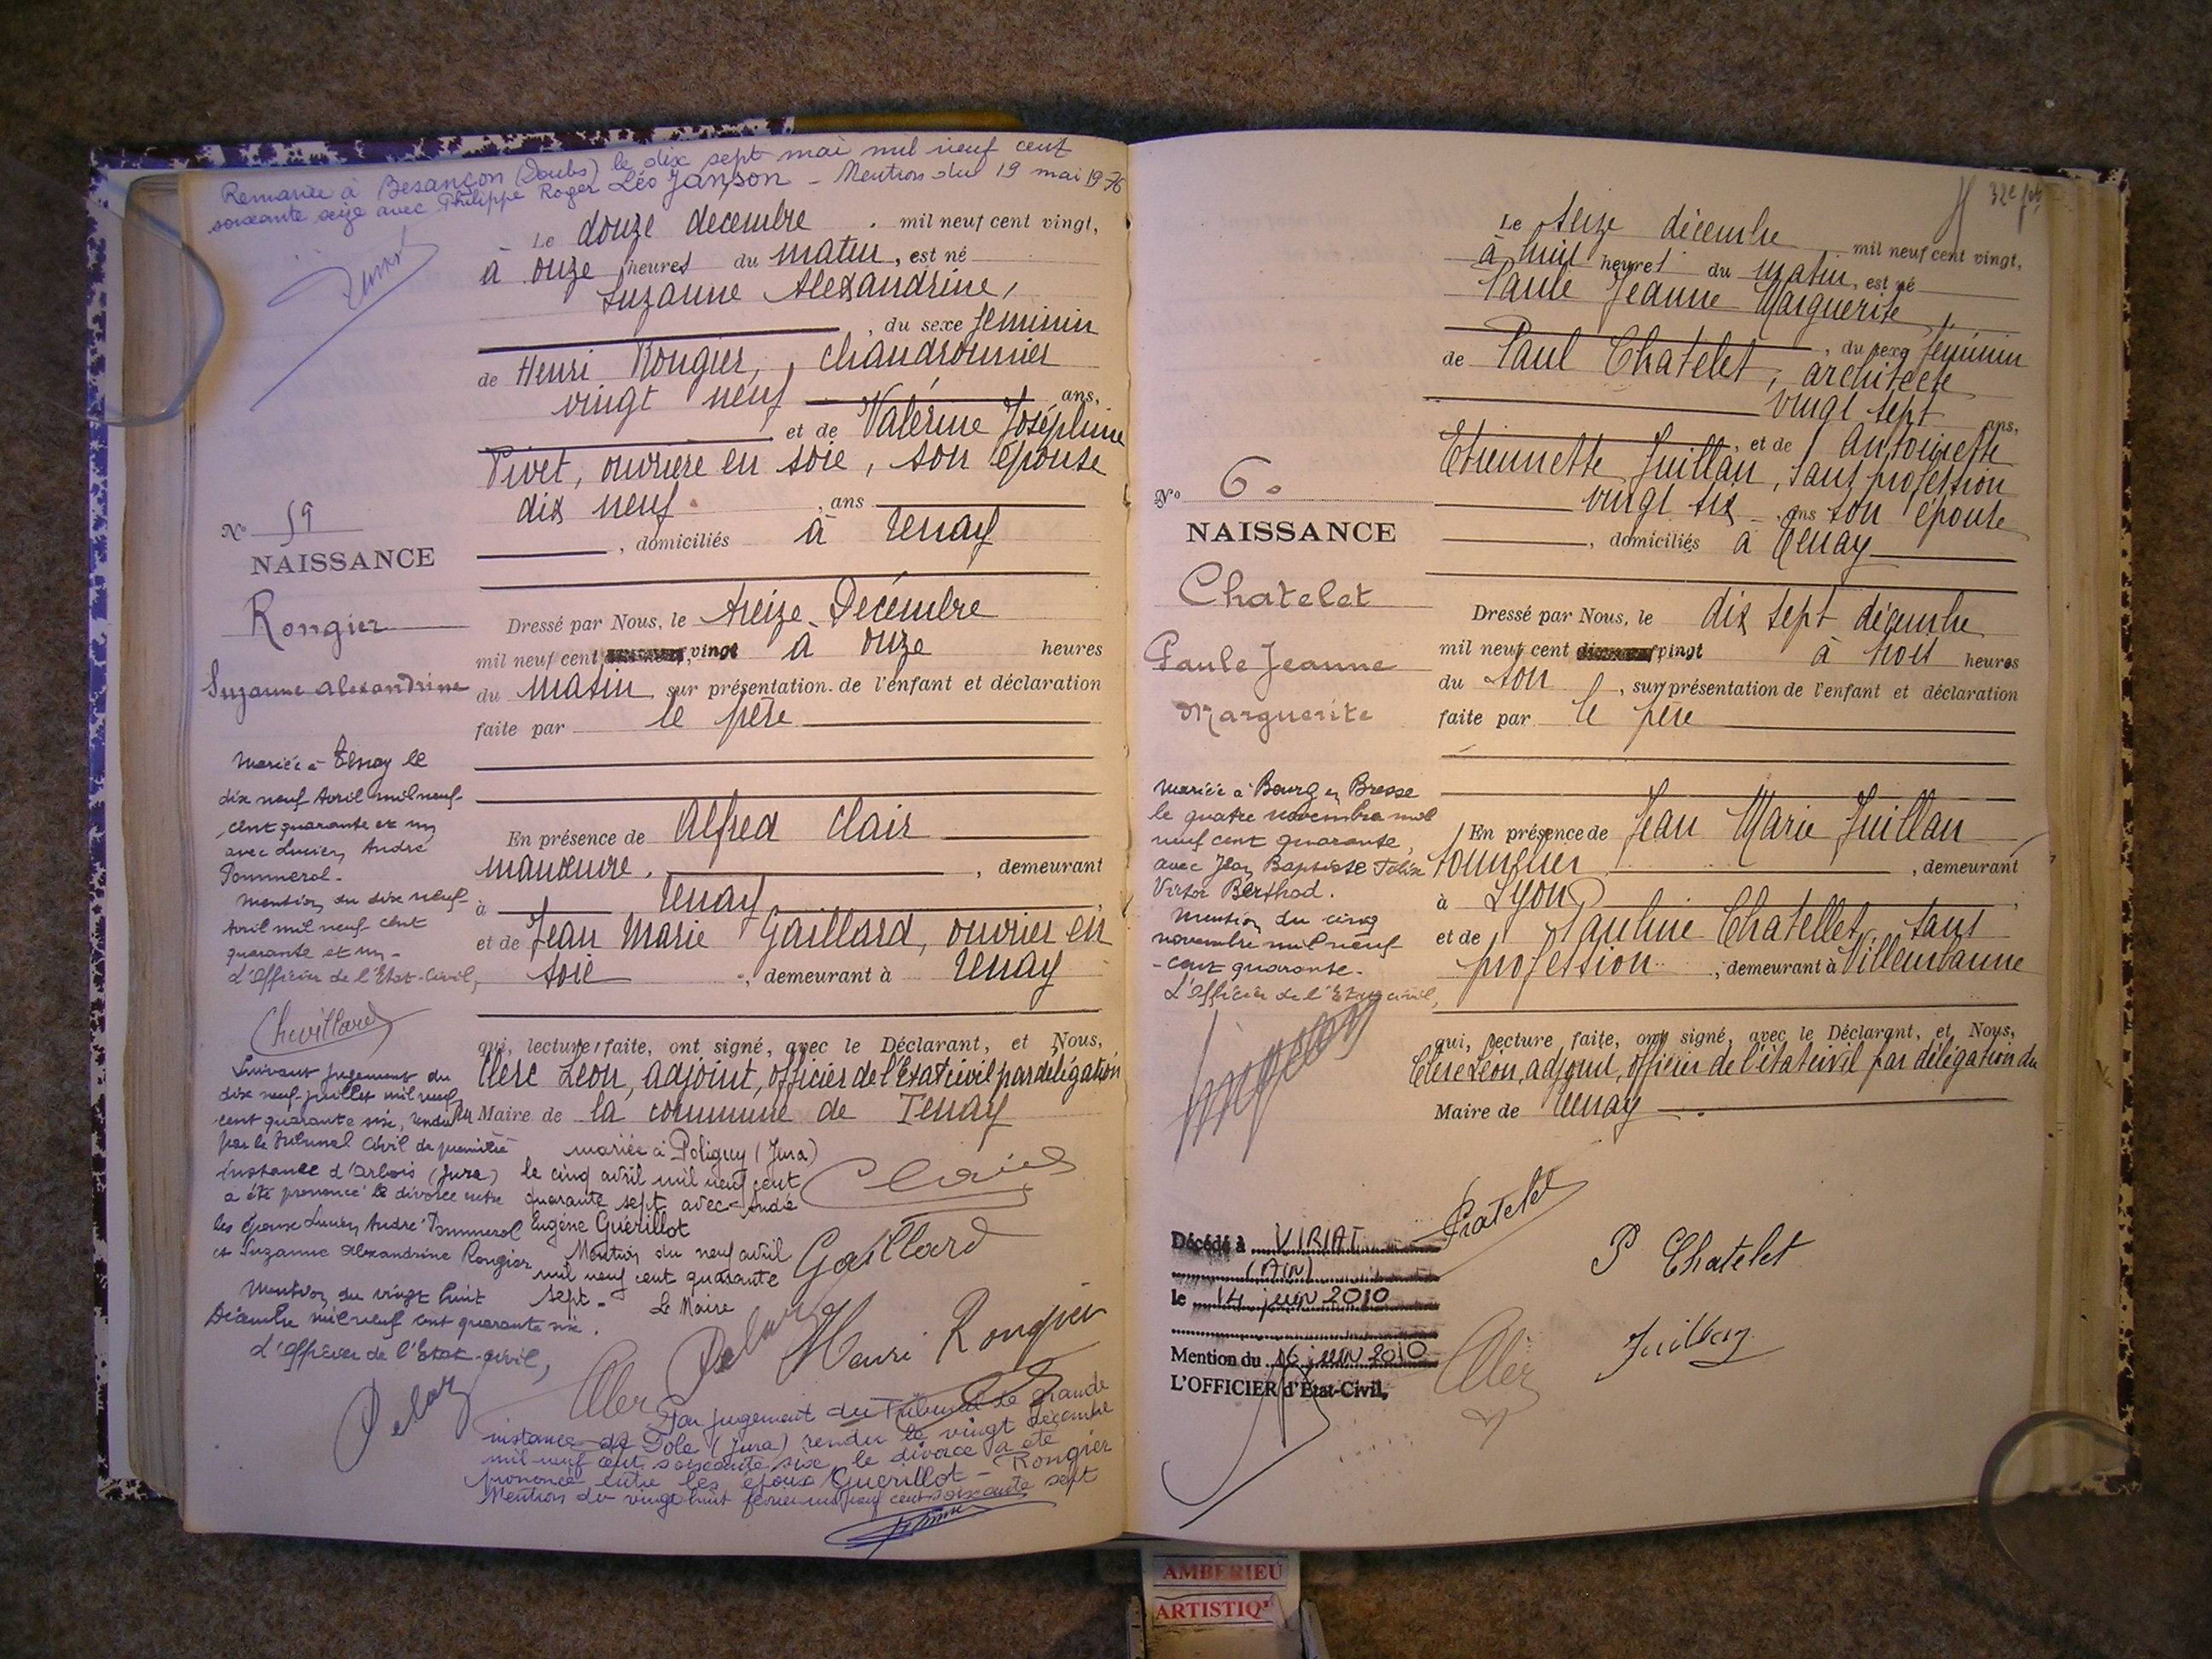 Remariée à Besançon (Doubs) le dix sept mai mil neuf cent
soixante seize avec Philippe Roger Léo Janson - Mention du 19 mai 1976
Le douze decembre mil neuf cent vingt,
à onze heures du matin, est né
Suzanne Alexandrine,
, du sexe feminin
de Henri Rongier, chaudronnier
vingt neuf ans,
et de Valérine Joséphine
Pivet, ouvrière en soie, son épouse
dix neuf, ans
, domiciliés à Tenay
No 59
NAISSANCE
Rongier
Suzanne Alexandrine
Dressé par Nous, le treize Décembre
mil neuf cent vingt à onze heures
du matin, sur présentation de l'enfant et déclaration
faite par le père
En présence de Alfred Clair
manœuvre, demeurant
à Tenay
et de Jean Marie Gaillard, ouvrier en
soie, demeurant à Tenay
qui, lecture faite, ont signé, avec le Déclarant, et Nous,
Clerc Léon, adjoint, officier de l'Etat civil par délégation
du Maire de la commune de Tenay
Mariée à Tenay le
dix neuf Avril mil neuf
cent quarante et un
avec Lucien, André
Pommerol.
Mention du dix neuf
Avril mil neuf cent
quarante et un -
L'Officier de l'Etat-Civil,
Chevillard
Suivant jugement du
dix neuf juillet mil neuf
cent quarante six, rendu
par le Tribunal Civil de première
instance d'Arbois (Jura)
a été prononcé le divorce entre
les époux Lucien, André Pommerol
et Suzanne Alexandrine Rongier
Mention du vingt huit
Décembre mil neuf cent quarante six.
L'Officier de l'Etat-civil,
mariée à Poligny (Jura)
le cinq avril mil neuf cent
quarante sept avec André
Eugène Guérillot
Mention du neuf avril
mil neuf cent quarante
sept - Le Maire
Clair
Gaillard
Henri Rongier
Par jugement du Tribunal de Grande
instance de Dole (Jura) rendu le vingt décembre
mil neuf cent soixante six, le divorce a été
prononcé entre les époux Guérillot - Rongier
Mention du vingt huit février mil neuf cent soixante sept
32e
Le seize décembre, mil neuf cent vingt,
à huit heures du matin, est né
Paule Jeanne Marguerite,
, du sexe féminin
de Paul Chatelet, architecte
vingt sept ans,
et de Antoinette
Etiennette Juillan, sans profession
vingt six ans son épouse
, domiciliés à Tenay
No 60
NAISSANCE
Chatelet
Paule Jeanne
Marguerite
Dressé par Nous, le dix sept décembre
mil neuf cent vingt à trois heures
du soir, sur présentation de l'enfant et déclaration
faite par le père
En présence de Jean Marie Juillan
, demeurant
à Lyon
et de Pauline Chatellet, sans
profession, demeurant à Villeurbanne
qui, lecture faite, ont signé, avec le Déclarant, et Nous,
Clerc Léon, adjoint, officier de l'état civil par délégation du
Maire de Tenay
Mariée à Bourg en Bresse
le quatre novembre mil
neuf cent quarante,
avec Jean Baptiste Félix
Victor Berthod.
Mention du cinq
novembre mil neuf
cent quarante.
L'Officier de l'Etat civil,
Décédé à VIRIAT
(AIN)
le 14 juin 2010
Mention du 16 juin 2010
L'OFFICIER d'Etat-Civil,
Chatelet
P Chatelet
AMBERIEU
ARTISTIQ